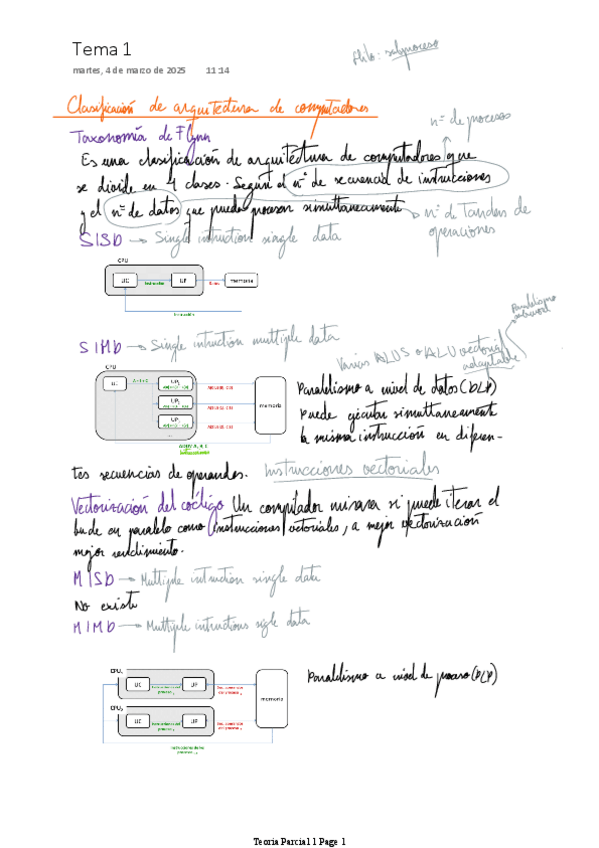 Tema 1
martes, 4 de marzo de 2025 11:14
Hilo: subproceso
Clasificación de arquitectura de computadores
Taxonomía de Flynn
nº de procesos
Es una clasificación de arquitectura de computadores que
se divide en 4 clases. Según el nº de secuencia de instrucciones
y el nº de datos que puede procesar simultaneamente
nº de Tandas de
operaciones
SISD → Single intruction single data
CPU
UC
UP
memoria
SIMD → Single intruction multiple data
Paralelismo
Varias ALUS o ALU vectorial
adaptable
CPU
UC
UP₁
UP
UP
memoria
Paralelismo a nivel de datos (DLP)
Puede ejecutar simultaneamente
la misma instrucción en diferen-
tes secuencias de operandos. Instrucciones vectoriales
Vectorización del código Un compilador mirara si puede iterar el
bucle en paralelo como instrucciones vectoriales, a mejor vectorización
mejor rendimiento.
MISD → Multiple intruction single data
No existe
MIMD → Multiple intructions single data
CPU₁
UC
UP
CPU₂
UC
UP
memoria
Paralelismo a nivel de proceso (PLP)
Teoria Parcial 1 Page 1